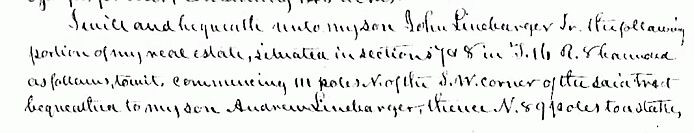 I will and bequeath unto my son John Linebarger Jr. the following
portion of my real estate, situated in sections 7 & 8 in T. 16 R. 8 bounded
as follows, towit, commencing 111 poles N. of the S.W. corner of the said tract
bequeathed to my son Andrew Linebarger, thence N. 89 poles to a stake,